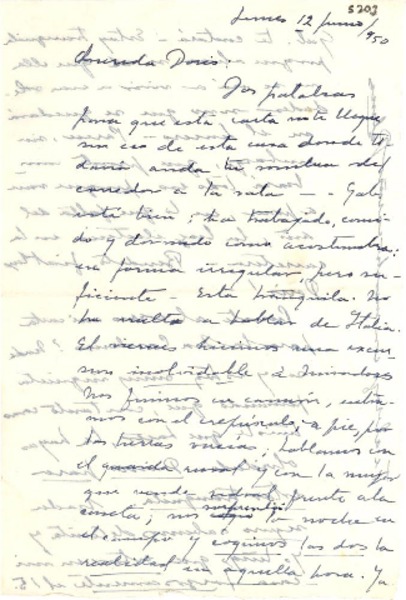 5203
Lunes 12 junio/950
Querida Doris:
Dos palabras
para que esta carta no te llegue
sin eco de esta casa donde to
davía anda tu sombra del
corredor a la sala - - Gab.
está bien; ha trabajado, comi
do y dormido como acostumbra:
en forma irregular, pero su-
ficiente - Está tranquila. No
ha vuelto a hablar de Italia.
El viernes hicimos una excur
sión inolvidable a
Nos fuimos en camión, entra
mos con el crepúsculo, a pie, por
las tierras vacías; hablamos con
el guarda rural y con la mujer
que vende frente a la
caseta; nos sorprendió la noche en
el campo y cogimos las dos la
realidad en aquella hora. Ya